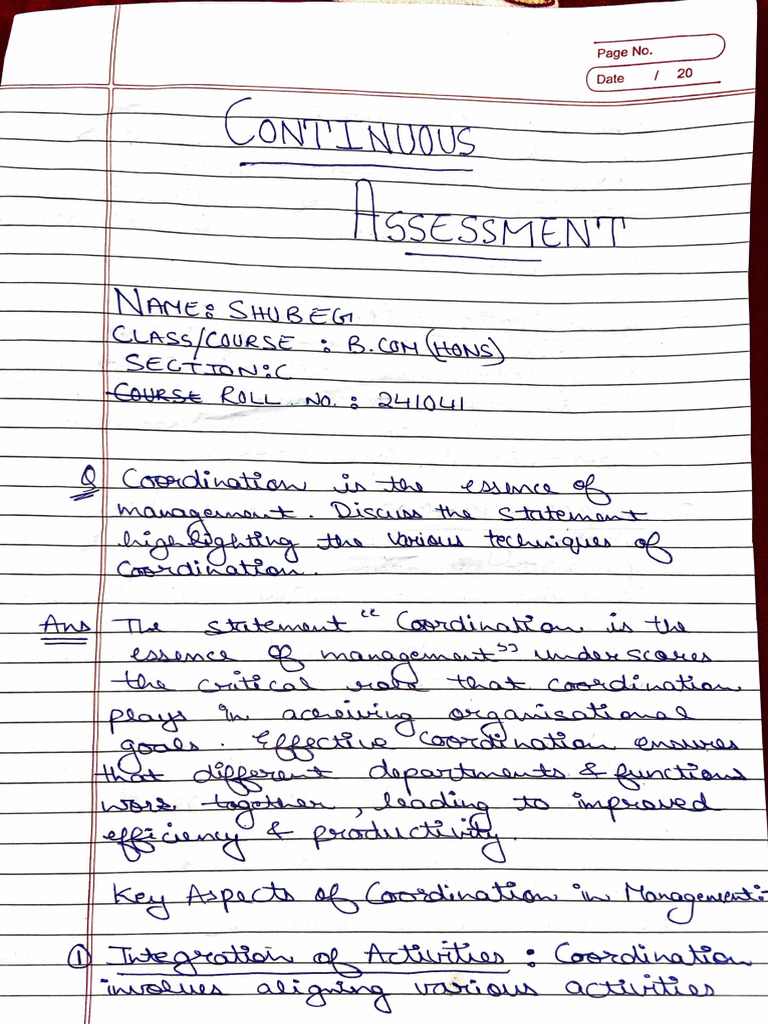 Page No.
Date / 20
CONTINUOUS
ASSESSMENT
NAME: SHUBEG
CLASS/COURSE : B.COM (HONS)
SECTION: C
COURSE ROLL NO. : 241041
Q Coordination is the essence of
management. Discuss the statement
highlighting the various techniques of
coordination.
Ans The statement "Coordination is the
essence of management" underscores
the critical role that coordination
plays in acheiving organisational
goals. Effective coordination ensures
that different departments & functions
work together, leading to improved
efficiency & productivity.
Key Aspects of Coordination in Management:
① Integration of Activities : Coordination
involves aligning various activities